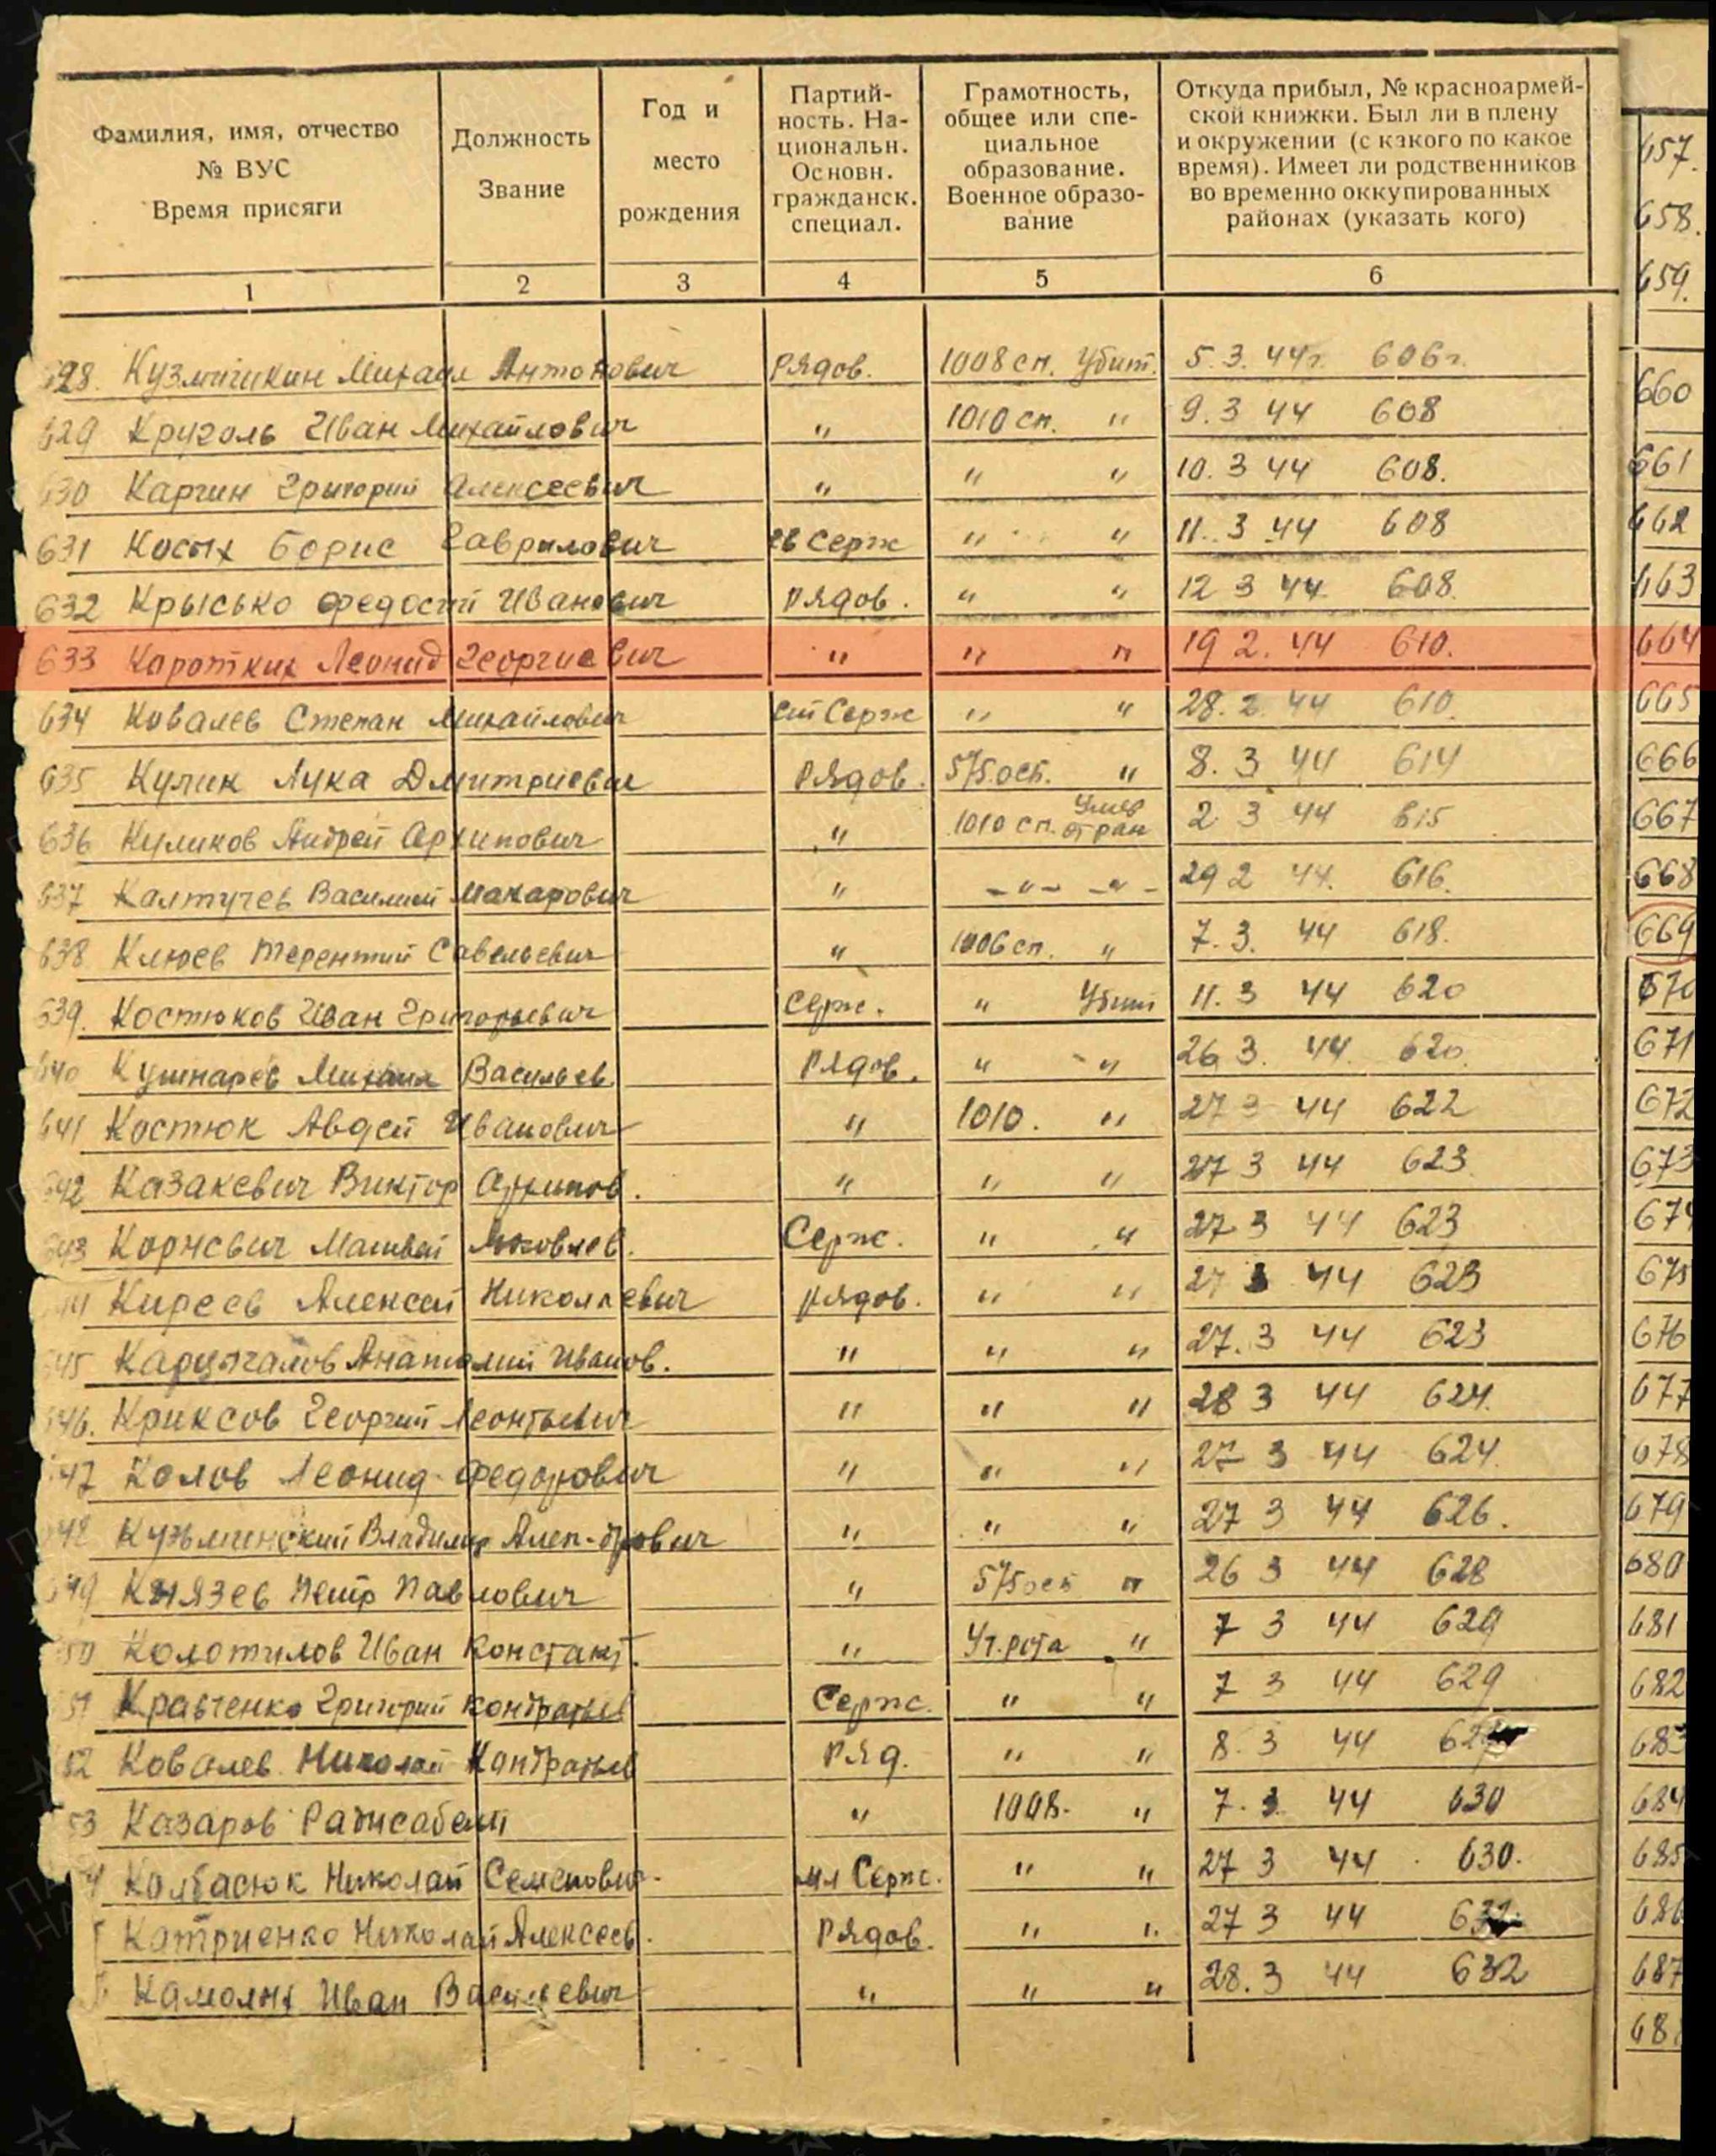 Фамилия, имя, отчество
№ ВУС
Время присяги
Должность
Звание
Год и
место
рождения
Партий-
ность. На-
циональн.
Основн.
гражданск.
специал.
Грамотность,
общее или спе-
циальное
образование.
Военное образо-
вание
Откуда прибыл, № красноармей-
ской книжки. Был ли в плену
и окружении (с какого по какое
время). Имеет ли родственников
во временно оккупированных
районах (указать кого)
1 2 3 4 5 6
628. Михаил Антонович Рядов. 1008 сп. Убит. 5. 3. 44г. 606г.
629 Круголь Иван Михайлович " 1010 сп. " 9. 3 44 608
630 Каргин Григорий Алексеевич " " " 10. 3 44 608.
631 Косых Борис Гаврилович Серж " " 11. 3 44 608
632 Крысько Федосий Иванович Рядов. " " 12 3 44 608.
633 Коротких Леонид Георгиевич " " " 19 2. 44 610.
634 Ковалев Степан Михайлович ст Серж " " 28. 2. 44 610.
635 Кулик Лука Дмитриевич Рядов. 575. " 8. 3 44 614
636 Куликов Андрей Архипович " 1010 сп. Умер от ран 2 3 44 615
637 Калтучев Василий Макарович " -"- -"- 29 2 44. 616.
638 Клюев Терентий Савельевич " 1006 сп. " 7. 3. 44 618.
639. Костюков Иван Григорьевич Серж. " Убит 11. 3 44 620
640 Кушнарев Михаил Васильев. Рядов. " " 26 3. 44. 620.
641 Костюк Авдей Иванович " 1010. " 27 3 44 622
642 Казакевич Виктор Архипов. " " " 27 3 44 623.
643 Корневич Матвей Яковлев. Серж. " " 27 3 44 623
644 Киреев Алексей Николаевич Рядов. " " 27 3 44 623
645 Анатолий Иванов. " " " 27. 3 44 623
646. Криксов Георгий Леонтьевич " " " 28 3 44 624.
647 Колов Леонид Федорович " " " 27 3 44 624.
648 Кузьминский Владимир Алек-дрович " " " 27 3 44 626.
649 Князев Петр Павлович " 575 " 26 3 44 628
50 Колотилов Иван Констант. " Уч. рота " 7 3 44 629
51 Кравченко Григорий Контратьев Серж. " " 7 3 44 629
52 Ковалев Николай Кантратьев Ряд. " " 8. 3 44
53 Казаров " 1008. " 7. 3. 44 630
4 Колбасюк Николай Семенович. мл Серж. " " 27 3 44 630.
5 Катриенко Николай Алексеев. Рядов. " " 27 3 44
6 Иван Васильевич " " " 28. 3 44 632
657.
658.
659.
660
661
662
663
664
665
666
667
668
669
670
671
672
673
674
675
676
677
678
679
680
681
682
683
684
685
686
687